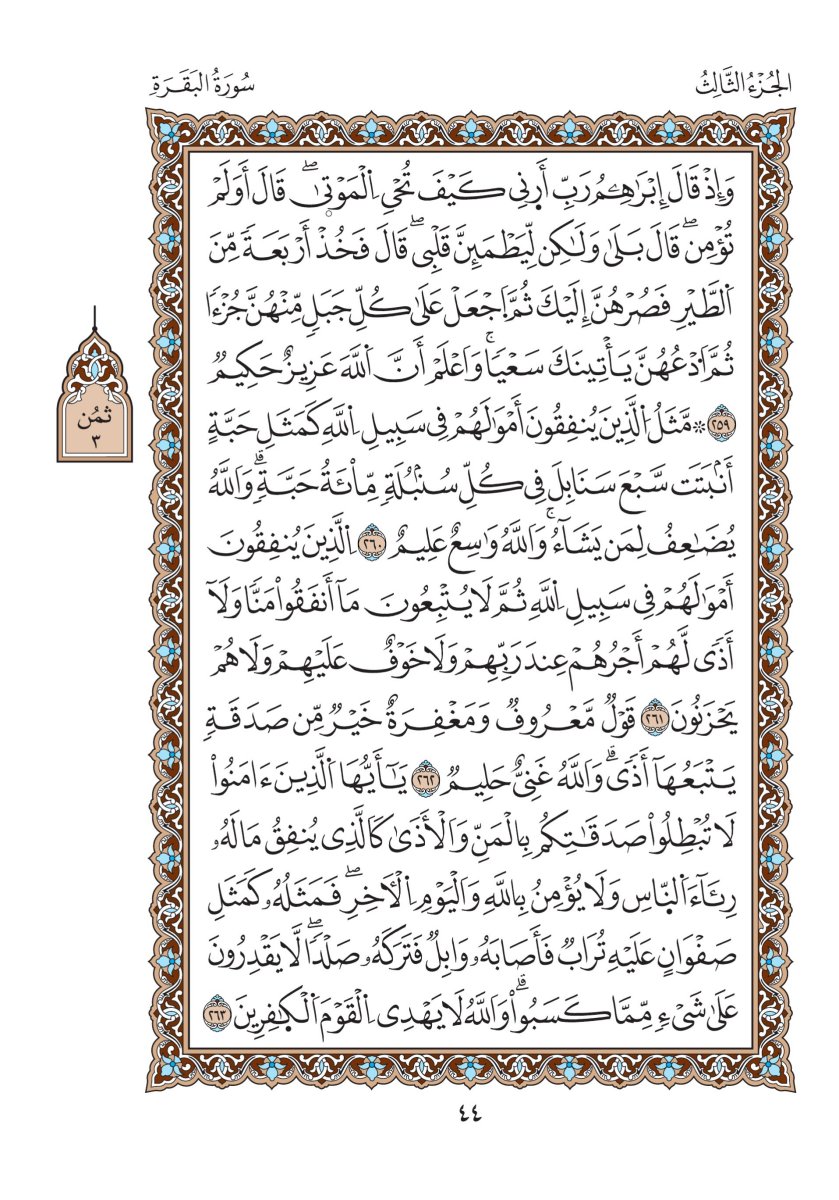 الجُزْءُ الثَّالِثُ
سُورَةُ البَقَرَةِ
وَإِذْ قَالَ إِبْرَٰهِـۧمُ رَبِّ أَرْنِي كَيْفَ تُحْيِ اِ۬لْمَوْتۭيٰۖ قَالَ أَوَلَمْ
تُؤْمِنۖ قَالَ بَلَىٰ وَلَٰكِن لِّيَطْمَئِنَّ قَلْبِيۖ قَالَ فَخُذْ أَرْبَعَةٗ مِّنَ
اَ۬لطَّيْرِ فَصُرْهُنَّ إِلَيْكَ ثُمَّ اَ۪جْعَلْ عَلَىٰ كُلِّ جَبَلٖ مِّنْهُنَّ جُزْءٗا
ثُمَّ اَ۟دْعُهُنَّ يَأْتِينَكَ سَعْيٗاۚ وَاَعْلَمْ أَنَّ اَ۬للَّهَ عَزِيزٌ حَكِيمٞ
٢٥٩ ۞ مَّثَلُ اُ۬لذِينَ يُنفِقُونَ أَمْوَٰلَهُمْ فِي سَبِيلِ اِ۬للَّهِ كَمَثَلِ حَبَّةٍ
أَنۢبَتَت سَّبْعَ سَنَابِلَ فِي كُلِّ سُنۢبُلَةٖ مِّاْئَةُ حَبَّةٖۗ وَاَللَّهُ
يُضَٰعِفُ لِمَن يَشَآءُۚ وَاَللَّهُ وَٰسِعٌ عَلِيمٌ ٢٦٠ اِ۬لذِينَ يُنفِقُونَ
أَمْوَٰلَهُمْ فِي سَبِيلِ اِ۬للَّهِ ثُمَّ لَا يُتْبِعُونَ مَآ أَنفَقُواْ مَنّٗا وَلَآ
أَذٗى لَّهُمْ أَجْرُهُمْ عِندَ رَبِّهِمْ وَلَا خَوْفٌ عَلَيْهِمْ وَلَا هُمْ
يَحْزَنُونَ ٢٦١ قَوْلٞ مَّعْرُوفٞ وَمَغْفِرَةٌ خَيْرٞ مِّن صَدَقَةٖ
يَتْبَعُهَآ أَذٗىۗ وَاَللَّهُ غَنِيٌّ حَلِيمٞ ٢٦٢ يَٰٓأَيُّهَا اَ۬لذِينَ ءَامَنُواْ
لَا تُبْطِلُواْ صَدَقَٰتِكُم بِالْمَنِّ وَالْأَذَىٰ كَالذِي يُنفِقُ مَالَهُۥ
رِئَآءَ اَ۬لنَّاسِ وَلَا يُؤْمِنُ بِاللَّهِ وَالْيَوْمِ اِ۬لْأٓخِرِۖ فَمَثَلُهُۥ كَمَثَلِ
صَفْوَانٍ عَلَيْهِ تُرَابٞ فَأَصَابَهُۥ وَابِلٞ فَتَرَكَهُۥ صَلْدٗاۖ لَّا يَقْدِرُونَ
عَلَىٰ شَيْءٖ مِّمَّا كَسَبُواْۗ وَاَللَّهُ لَا يَهْدِي اِ۬لْقَوْمَ اَ۬لْكٰ۪فِرِينَ ٢٦٣
ثُمُن
٣
٤٤